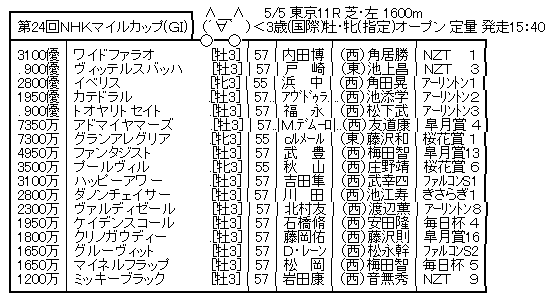 5/5 東京11R 芝・左 1600m
第24回NHKマイルカップ(GI) ( ▽ ) <3歳(国際)牡・牝(指定)オープン 定量 発走15:40
3100優 ワイドファラオ [牡3] 57 内田博 (西)角居勝 NZT 1
.900優 ヴィッテルスバッハ [牡3] 57 戸崎 (東)池上昌 NZT 3
2800優 イベリス [牝3] 55 浜中 (西)角田晃 アーリントン1
1950優 カテドラル [牡3] 57.. アヴドゥラ.. (西)池添学 アーリントン2
.900優 トオヤリトセイト [牡3] 57 福永 (西)松下武 アーリントン3
7350万 アドマイヤマーズ [牡3] 57.. M.デムーロ (西)友道康 皐月賞 4
7300万 グランアレグリア [牝3] 55 Cルメール (東)藤沢和 桜花賞 1
4950万 ファンタジスト [牡3] 57 武豊 (西)梅田智 皐月賞13
3500万 プールヴィル [牝3] 55 秋山 (西)庄野靖 桜花賞 6
3100万 ハッピーアワー [牡3] 57 吉田隼 (西)武幸四 ファルコンS1
2800万 ダノンチェイサー [牡3] 57 川田 (西)池江寿 きさらぎ1
2300万 ヴァルディゼール [牡3] 57 北村友 (西)渡辺薫 アーリントン8
1950万 ケイデンスコール [牡3] 57 石橋脩 (西)安田隆 毎日杯 4
1800万 クリノガウディー [牡3] 57 藤岡佑 (西)藤沢則 皐月賞16
1650万 グルーヴィット [牡3] 57 D・レーン (西)松永幹 ファルコンS2
1650万 マイネルフラップ [牡3] 57 松岡 (西)梅田智 毎日杯 5
1200万 ミッキーブラック [牡3] 57 岩田康 (西)音無秀 NZT 9